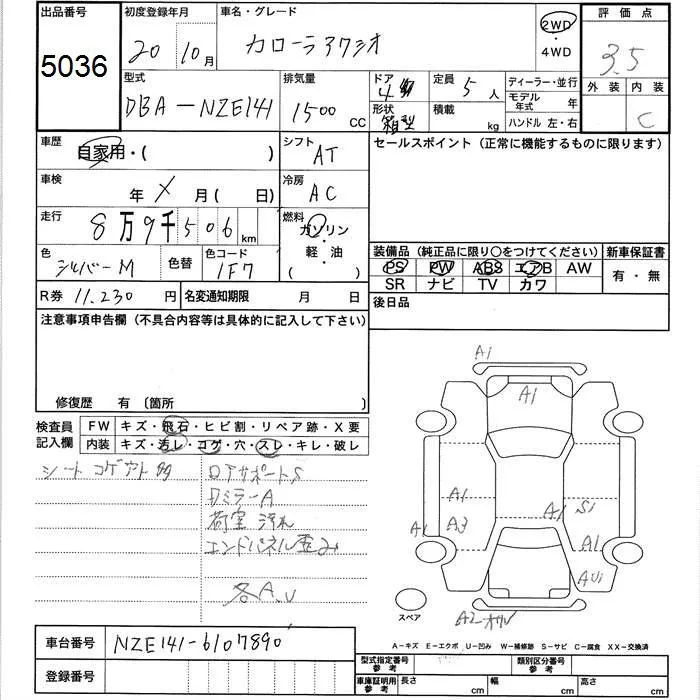 出品番号
5036
初度登録年月
20 10月
車名・グレード
カローラアクシオ
2WD
・
4WD
評価点
3.5
外装 内装
C
型式
DBA-NZE141
排気量
1500 CC
ドア
4
形状
箱型
定員
5人
積載
kg
ディーラー・並行
モデル年式 年
ハンドル 左・右
車歴
自家用・( )
シフト
AT
セールスポイント (正常に機能するものに限ります)
車検
年 X 月 ( 日)
冷房
AC
走行
8万9千506km
燃料
ガソリン
・
軽・油
( )
色
シルバーM
色替
色コード
1F7
装備品 (純正品に限り○をつけてください)
PS PW ABS エアB AW
SR ナビ TV カワ
新車保証書
有・無
R券 11.230 円
名変通知期限 月 日
後日品
注意事項申告欄 (不具合内容等は具体的に記入して下さい)
修復歴 有 〔箇所 〕
検査員記入欄
FW キズ・飛石・ヒビ割・リペア跡・X要
内装 キズ・汚レ・コゲ・穴・スレ・キレ・破レ
シート コゲアト 多
ロアサポートS
Rミラー A
荷室 汚れ
エンドパネル歪み
各A.U
A1
A1
A1
A1
A3
A1
S1
A1
AU1
A2-
スペア
A-キズ E-エクボ U-凹み W-補修跡 S-サビ C-腐食 XX-交換済
車台番号 NZE141-6107890
登録番号
型式指定番号 参考
類別区分番号 参考
車庫証明用 参考
長さ cm 幅 cm 高さ cm